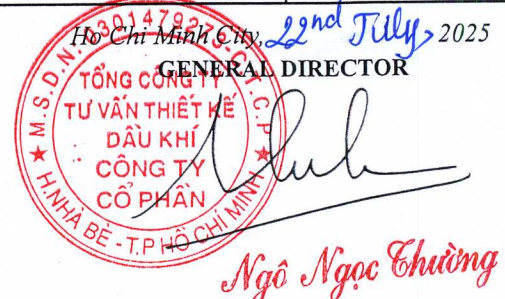 Ho Chi Minh City, 22nd July, 2025
GENERAL DIRECTOR
M.S.D.N: 0301479273-C.T.C.P
TỔNG CÔNG TY
TƯ VẤN THIẾT KẾ
DẦU KHÍ
CÔNG TY
CỔ PHẦN
H.NHÀ BÈ - T.P HỒ CHÍ MINH
Ngô Ngọc Thường